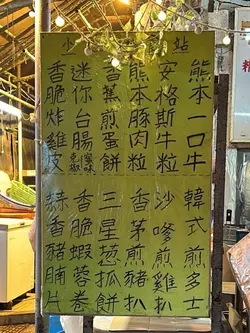 小站
熊本一口牛
安格斯牛粒
熊本豚肉粒
香葉煎蛋餅
迷你台腸
蜜味
香脆炸雞皮
韓式煎多士
沙嗲煎雞扒
香茅煎豬扒
三星葱抓餅
香脆蝦蓉卷
蒜香豬腩片